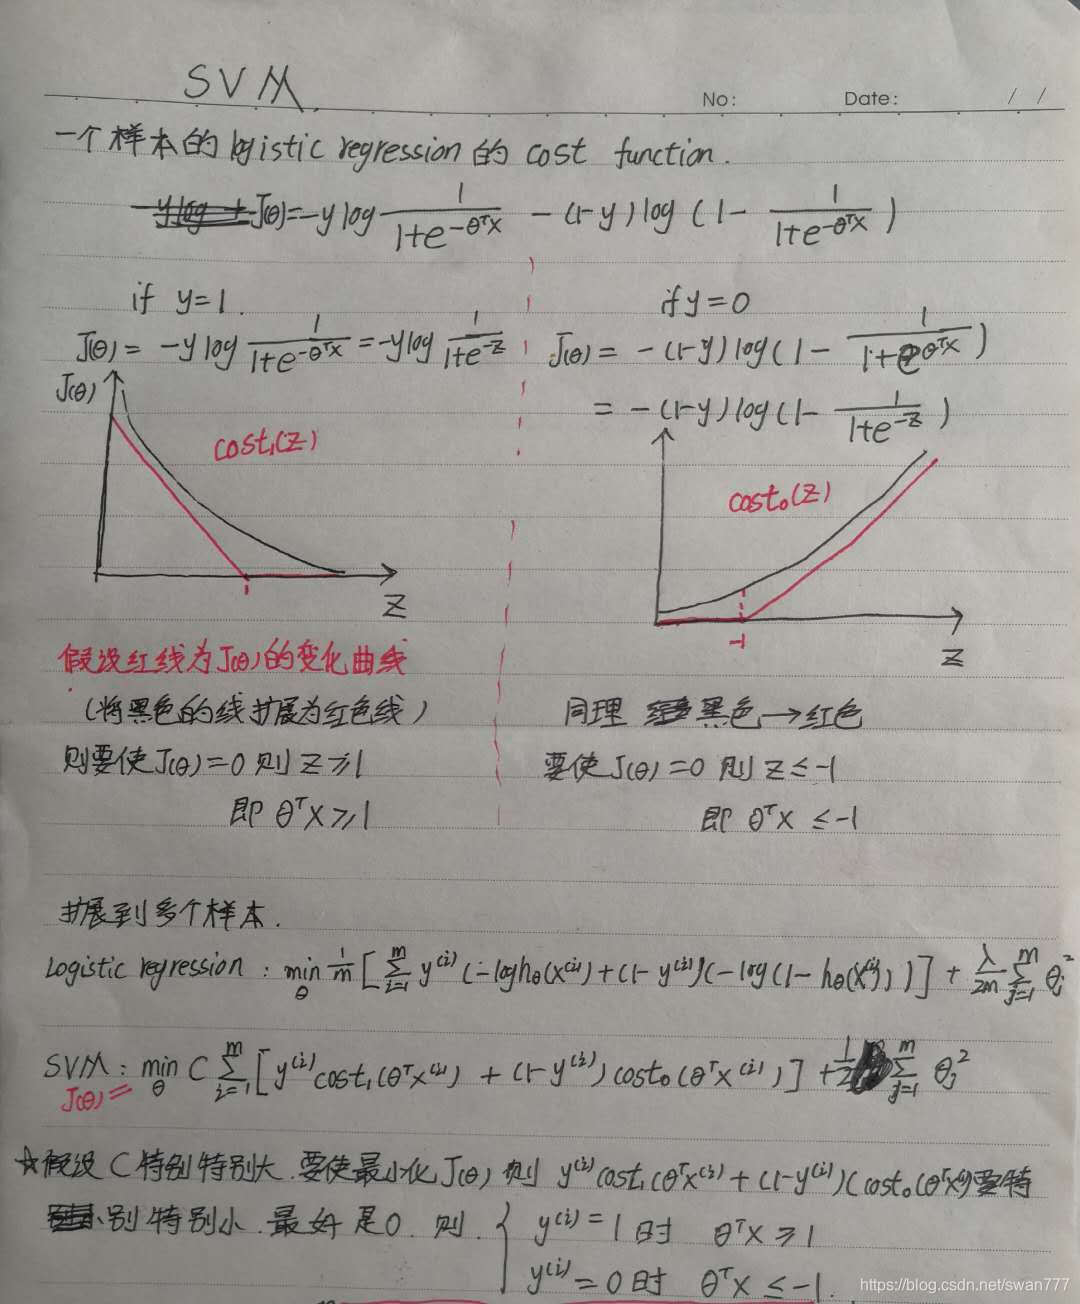 SVM
No: Date: / /
一个样本的 logistic regression 的 cost function.
J(θ)=-y log 1/(1+e^{-θᵀx}) - (1-y) log (1 - 1/(1+e^{-θᵀx}))
if y=1.
J(θ) = -y log 1/(1+e^{-θᵀx}) = -y log 1/(1+e^{-z})
J(θ)
cost₁(z)
1
z
假设红线为J(θ)的变化曲线
(将黑色的线扩展为红色线)
则要使J(θ)=0 则 z≥1
即 θᵀx≥1
if y=0
J(θ) = -(1-y) log(1 - 1/(1+e^{-θᵀx}))
= -(1-y) log(1 - 1/(1+e^{-z}))
cost₀(z)
-1
z
同理 黑色→红色
要使J(θ)=0 则 z≤-1
即 θᵀx ≤-1
扩展到多个样本.
Logistic regression : min_θ 1/m [ Σ_{i=1}^{m} y^{(i)} (-log h_θ(x^{(i)}) + (1-y^{(i)})(-log(1-h_θ(x^{(i)}))) ] + λ/2m Σ_{j=1}^{m} θ_j²
SVM : min_θ C Σ_{i=1}^{m} [ y^{(i)} cost₁(θᵀx^{(i)}) + (1-y^{(i)}) cost₀(θᵀx^{(i)}) ] + 1/2 Σ_{j=1}^{m} θ_j²
J(θ)=
☆假设 C 特别特别大.要使最小化J(θ) 则 y^{(i)} cost₁(θᵀx^{(i)}) + (1-y^{(i)})(cost₀(θᵀx^{(i)})要特
别特别小.最好是0. 则. { y^{(i)}=1时 θᵀx≥1
y^{(i)}=0时 θᵀx≤-1.
https://blog.csdn.net/swan777